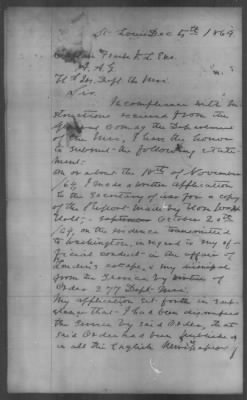 St Louis Dec 5th 1864
Captain Frank
A. A. G.
Hd Qrs Dept the Mo.
Sir.
In compliance with in
structions received from the
Genl Comdg the Department
of the Mo, I have the honor
to submit the following state
ment.
On or about the 10th of November
/64, I made a written application
to the Secretary of War for a copy
of the Report made by Hon.
Holt, October 20th
/64, on the evidence transmitted
to Washington, in regard to my of
ficial conduct in the affair of
escape, & my dismissal
from the service by virtue of
Order 277 Dept Mo.
My application set forth in sub
stance that I had been dismissed
the service by said Order, that
said Order had been published
in all the English Newspapers